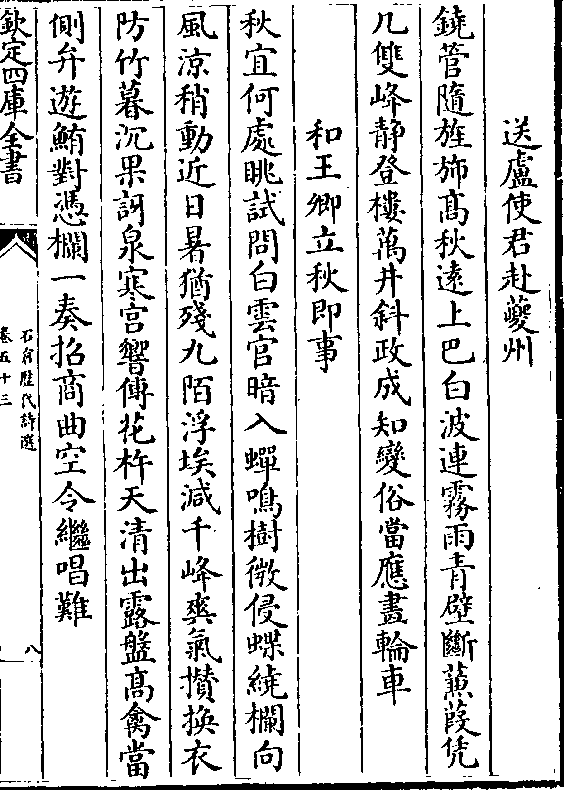 送盧使君赴夔州
鐃管隨旌斾高秋遠上巴白波連霧雨青壁斷蒹葭凭
几雙峰静登樓萬井斜政成知變俗當應畫輪車
和王卿立秋即事
秋宜何處眺試問白雲官暗入蟬鳴樹微侵蝶繞欄向
風涼稍動近日暑猶殘九陌浮埃減千峰爽氣攢換衣
防竹暮沉果訝泉寒宫響傳花杵天清出露盤高禽當
側弁遊鮪對憑欄一奏招商曲空令繼唱難
欽定四庫全書
石倉歷代詩選
卷五十三
八